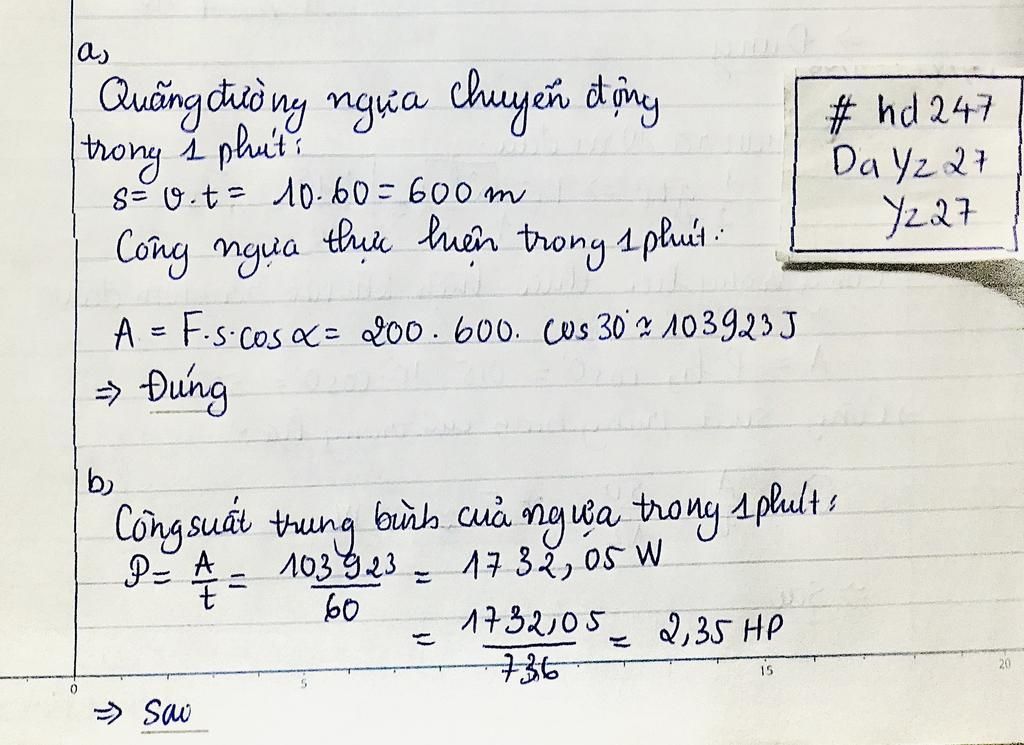 a,
Quãng đường ngựa chuyển động
trong 1 phút:
s= v.t = 10.60 = 600 m
Công ngựa thực hiện trong 1 phút:
A = F.s.cosα = 200.600. cos30° ≈ 103923J
⇒ Đúng
# hd247
DaYz27
Yz27
b,
Công suất trung bình của ngựa trong 1 phút:
P= A/t = 103923/60 = 1732,05 W
= 1732,05/736 = 2,35 HP
0 5 15 20
⇒ Sai